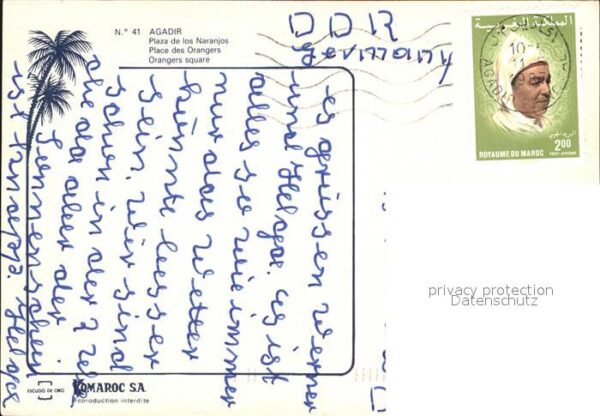 N.° 41 AGADIR
Plaza de los Naranjos
Place des Orangers
Orangers square
DDR
Germany
المملكة المغربية
2,00
ROYAUME DU MAROC
POSTE AERIENNE
es grüssen Werner
und Helga. Es ist
alles so wie immer
nur das Wetter
könnte besser
sein. Wir sind
schon in der 7. Woche
da aber der
Sonnenschein
ist knapp. Helga
privacy protection
Datenschutz
ESCUDO DE ORO
KOMAROC S.A.
Reproduction interdite